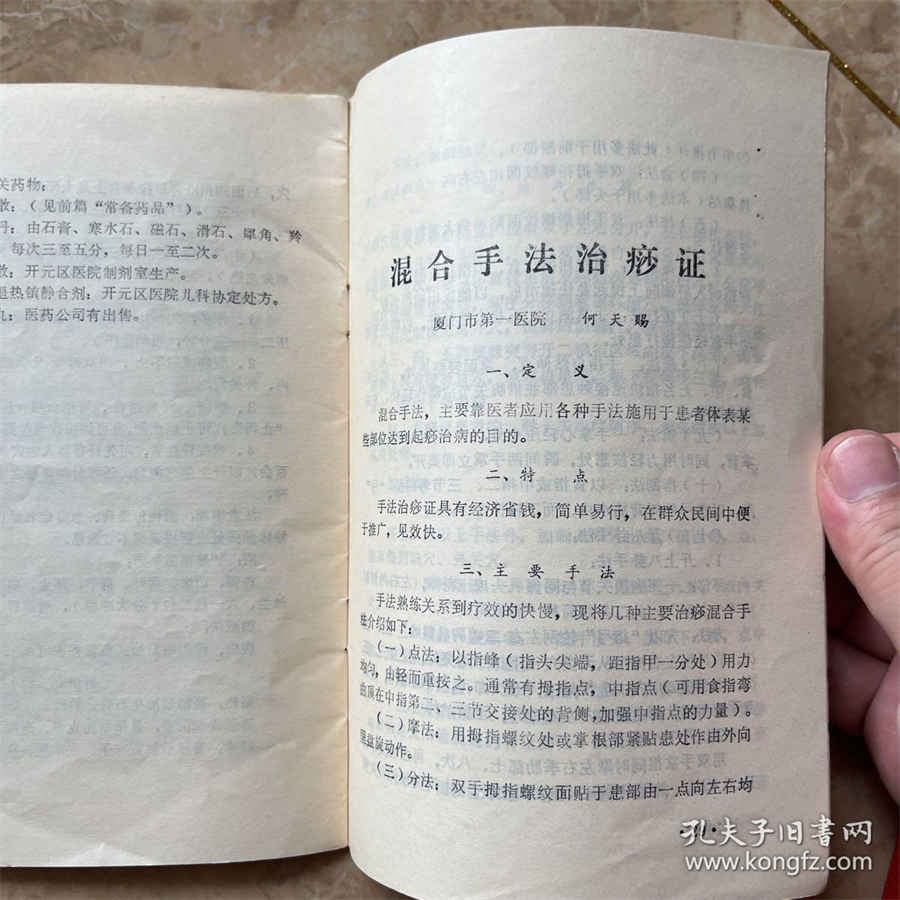 关药物：
散：（见前篇“常备药品”）。
丹：由石膏、寒水石、磁石、滑石、犀角、羚
每次三至五分，每日一至二次。
散：开元区医院制剂室生产。
退热镇静合剂：开元区医院儿科协定处方。
丸：医药公司有出售。
混合手法治痧证
厦门市第一医院 何天赐
一、定 义
混合手法，主要靠医者应用各种手法施用于患者体表某
些部位达到起痧治病的目的。
二、特 点
手法治痧证具有经济省钱，简单易行，在群众民间中便
于推广，见效快。
三、主 要 手 法
手法熟练关系到疗效的快慢，现将几种主要治痧混合手
法介绍如下：
（一）点法：以指峰（指头尖端，距指甲一分处）用力
均匀，由轻而重按之。通常有拇指点，中指点（可用食指弯
曲顶在中指第二、三节交接处的背侧，加强中指点的力量）。
（二）摩法：用拇指螺纹处或掌根部紧贴患处作由外向
里盘旋动作。
（三）分法：双手拇指螺纹面贴于患部由一点向左右均
孔夫子旧书网
www.kongfz.com